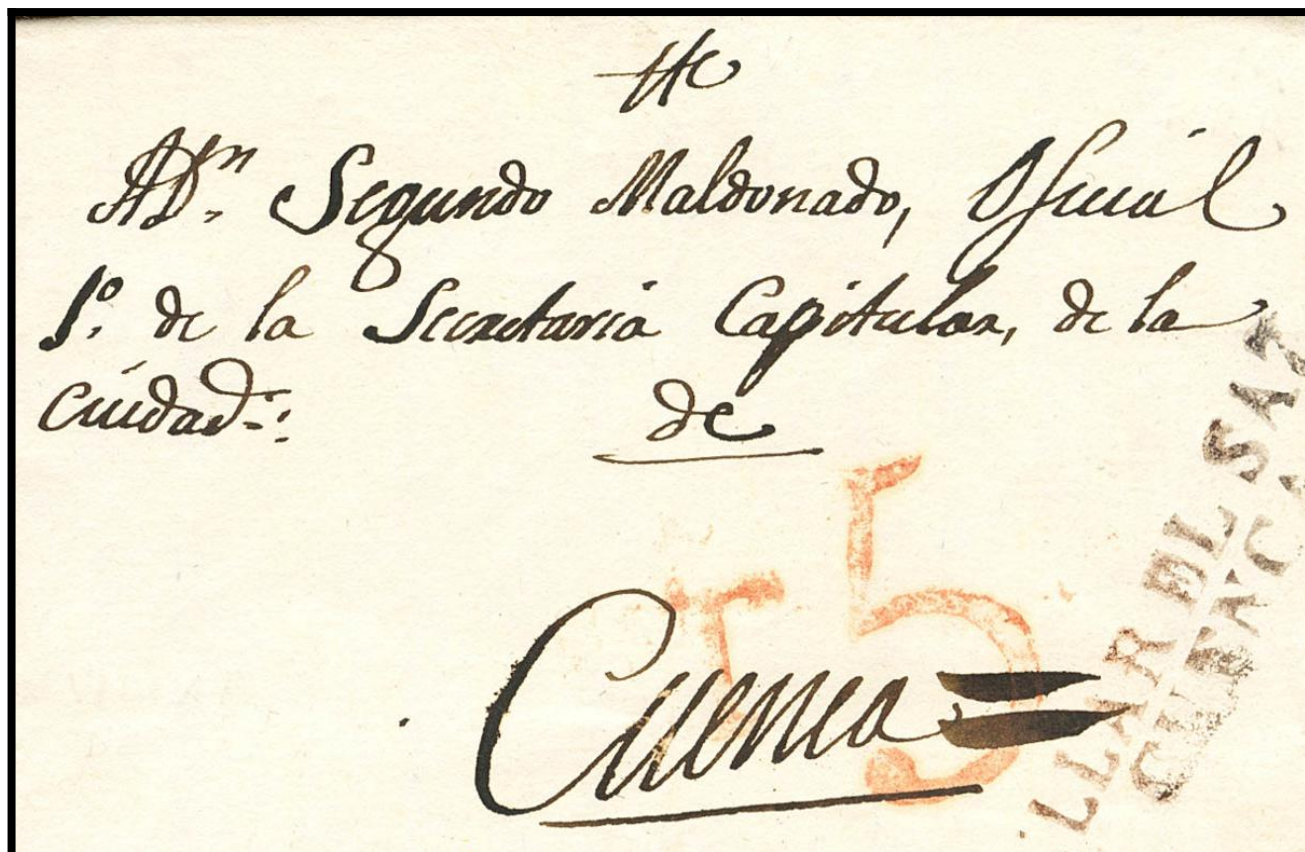 A Dn. Segundo Maldonado, Oficial
1º. de la Secretaria Capitular, de la
Ciudad.
de
Cuenca=
15
LLAR DL SAZ
CUENCA